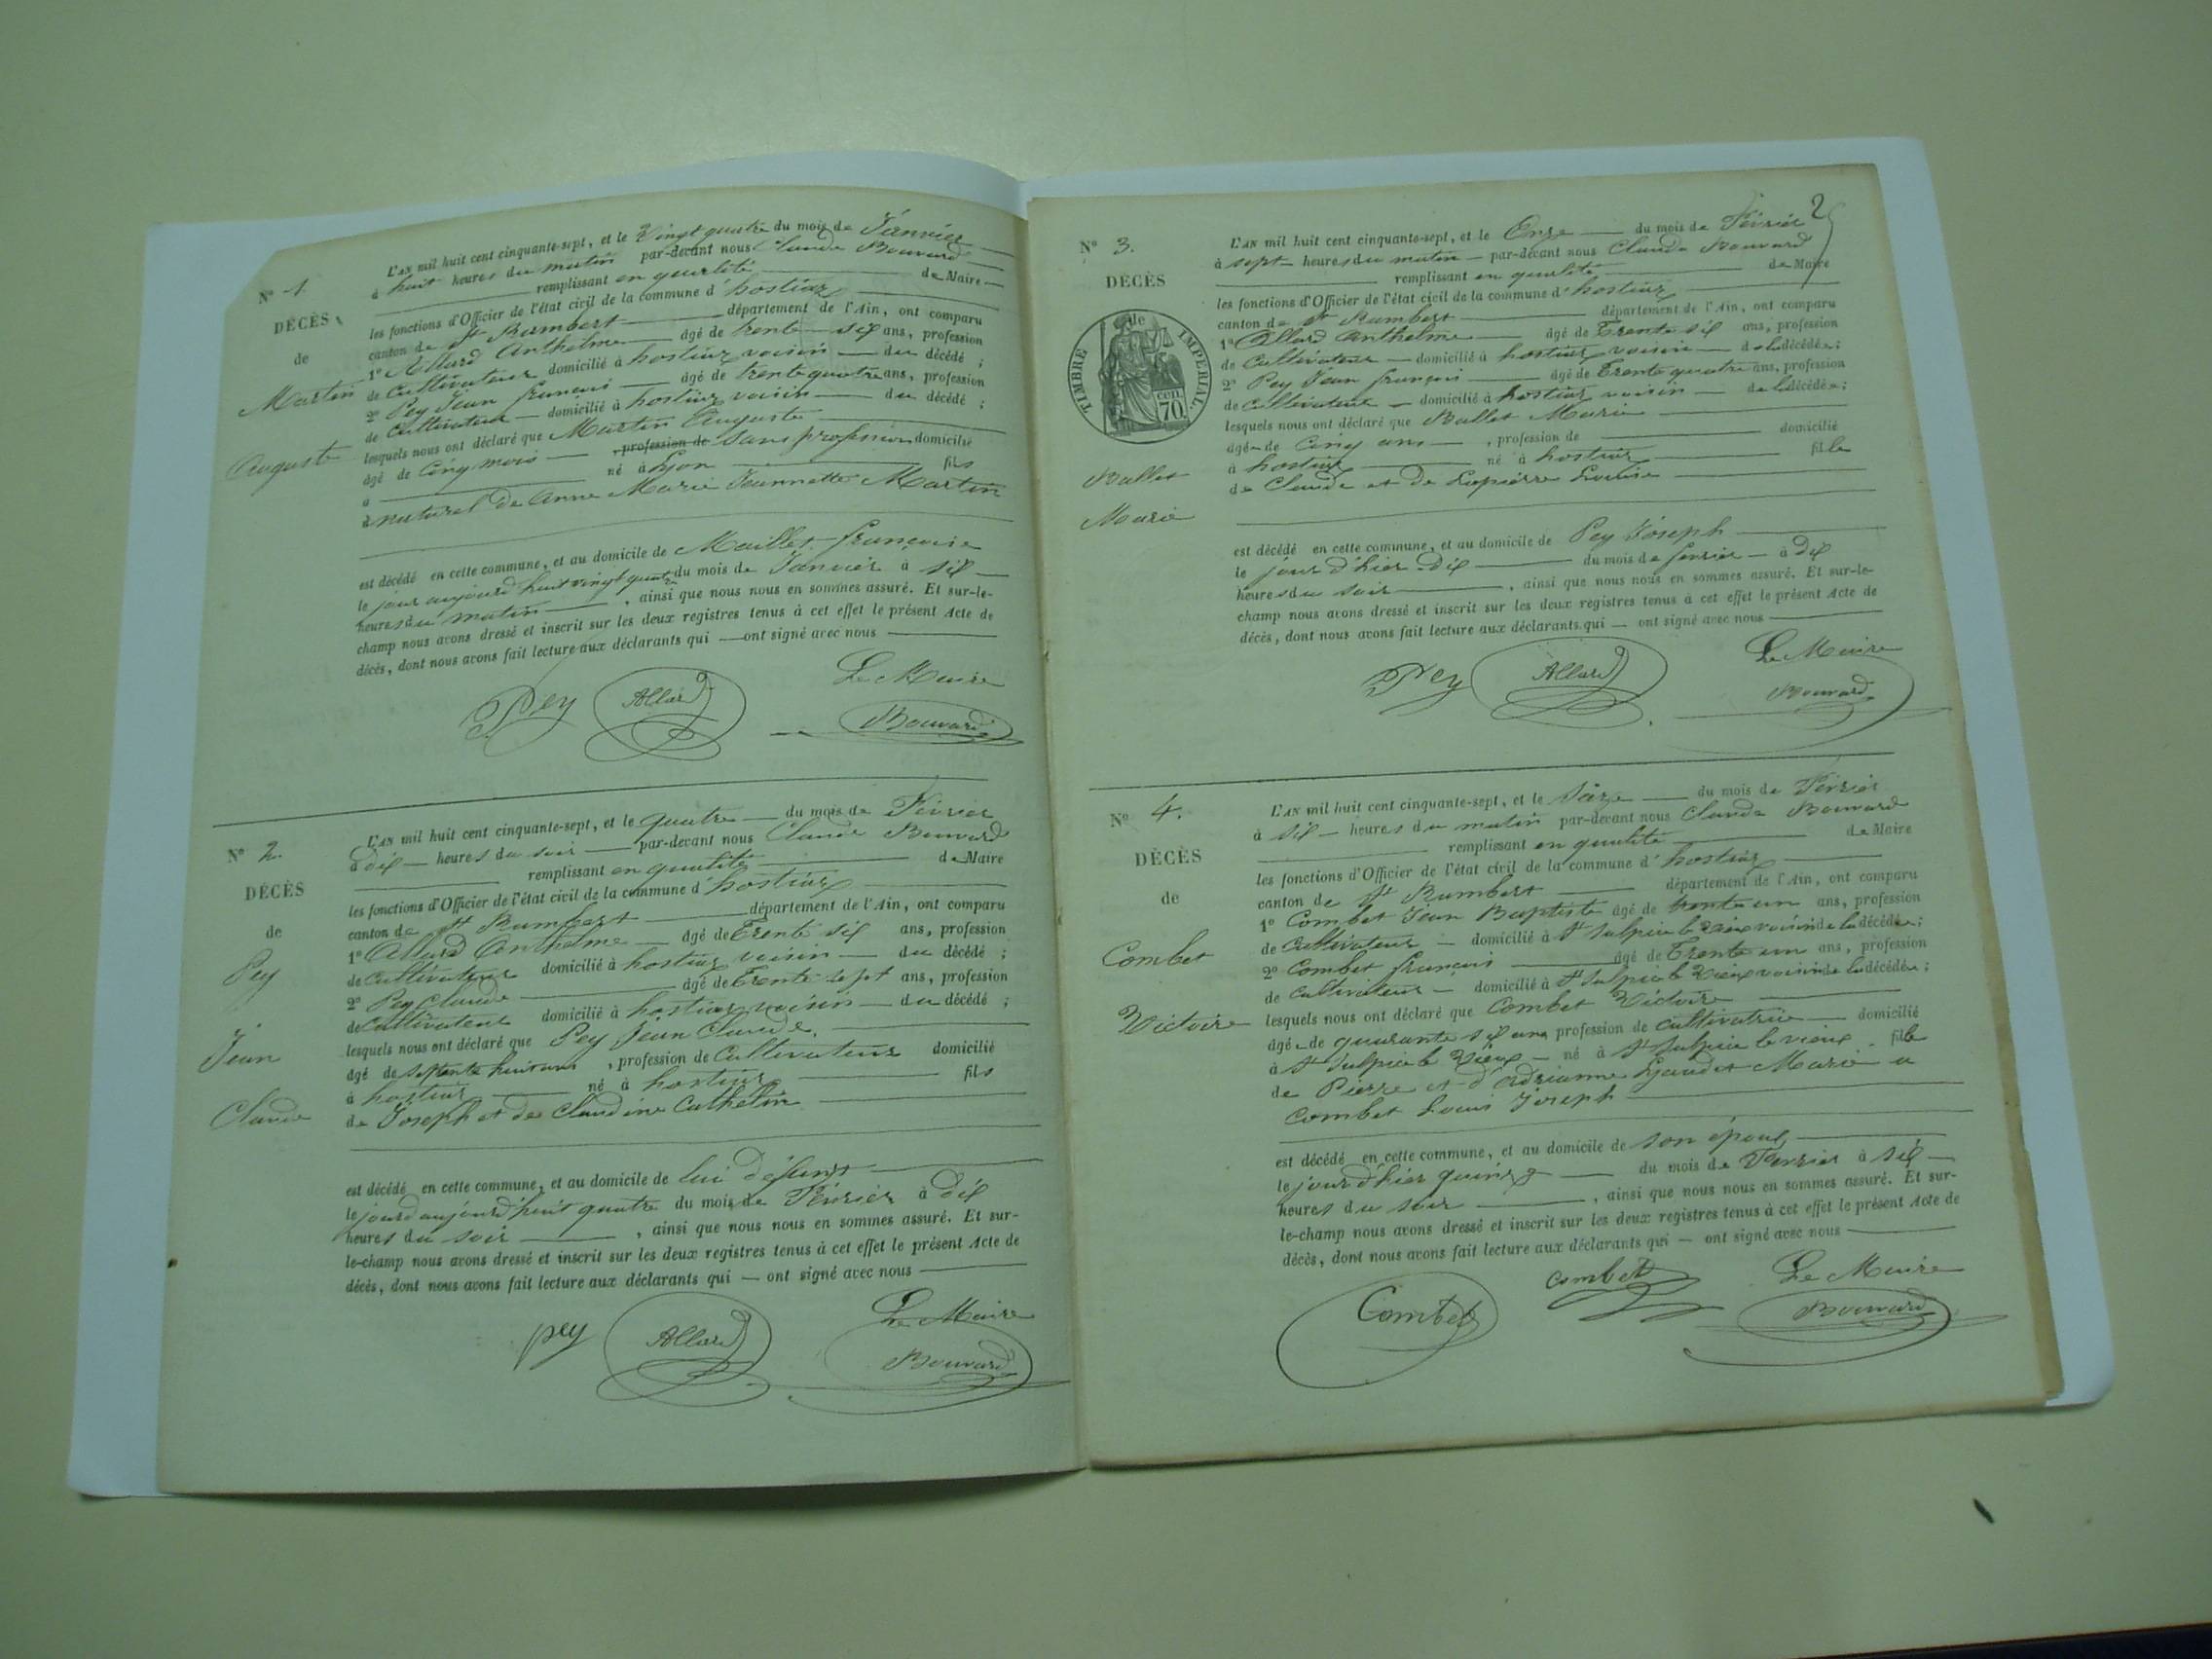 N° 1.
DÉCÈS
de
Martin
Auguste
L'AN mil huit cent cinquante-sept, et le Vingt quatre du mois de Janvier
à huit heures du matin par-devant nous Claude Bouvard
remplissant en qualité de Maire
les fonctions d'Officier de l'état civil de la commune d'hostiaz
canton de St Rambert département de l'Ain, ont comparu
1° Allard Anthelme âgé de trente six ans, profession
de Cultivateur domicilié à hostiaz voisin du décédé ;
2° Pey Jean françois âgé de trente quatre ans, profession
de Cultivateur domicilié à hostiaz voisin du décédé ;
lesquels nous ont déclaré que Martin Auguste
âgé de Cinq mois , profession de sans profession domicilié
à né à Lyon fils
naturel de Anne Marie Jeannette Martin
est décédé en cette commune, et au domicile de Maillet françoise
le jour aujourd'huit vingt quatre du mois de Janvier à six
heures du matin , ainsi que nous nous en sommes assuré. Et sur-le-
champ nous avons dressé et inscrit sur les deux registres tenus à cet effet le présent Acte de
décès, dont nous avons fait lecture aux déclarants qui ont signé avec nous
Le Maire
Pey Allard Bouvard
N° 2.
DÉCÈS
de
Pey
Jean
Claude
L'AN mil huit cent cinquante-sept, et le quatre du mois de Février
à dix heures du soir par-devant nous Claude Bouvard
remplissant en qualité de Maire
les fonctions d'Officier de l'état civil de la commune d'hostiaz
canton de St Rambert département de l'Ain, ont comparu
1° Allard Anthelme âgé de Trente six ans, profession
de Cultivateur domicilié à hostiaz voisin du décédé ;
2° Pey Claude âgé de Trente sept ans, profession
de Cultivateur domicilié à hostiaz voisin du décédé ;
lesquels nous ont déclaré que Pey Jean Claude
âgé de septante huit ans , profession de Cultivateur domicilié
à hostiaz né à hostiaz fils
de Joseph et de Claudine Cathelin
est décédé en cette commune, et au domicile de lui défunt
le jour d'aujourd'huit quatre du mois de Février à dix
heures du soir , ainsi que nous nous en sommes assuré. Et sur-
le-champ nous avons dressé et inscrit sur les deux registres tenus à cet effet le présent Acte de
décès, dont nous avons fait lecture aux déclarants qui ont signé avec nous
Le Maire
pey Allard Bouvard
2
N° 3.
DÉCÈS
de
TIMBRE IMPÉRIAL.
CENT. 70
Ballet
Marie
L'AN mil huit cent cinquante-sept, et le Onze du mois de Février
à sept heures du matin par-devant nous Claude Bouvard
remplissant en qualité de Maire
les fonctions d'Officier de l'état civil de la commune d'hostiaz
canton de St Rambert département de l'Ain, ont comparu
1° Allard Anthelme âgé de Trente six ans, profession
de Cultivateur domicilié à hostiaz voisin de la décédée ;
2° Pey Jean françois âgé de Trente quatre ans, profession
de Cultivateur domicilié à hostiaz voisin de la décédée ;
lesquels nous ont déclaré que Ballet Marie
âgée de Cinq ans , profession de domicilié
à hostiaz né à hostiaz fille
de Claude et de Lapierre Louise
est décédé en cette commune, et au domicile de Pey Joseph
le jour d'hier dix du mois de février à dix
heures du soir , ainsi que nous nous en sommes assuré. Et sur-le-
champ nous avons dressé et inscrit sur les deux registres tenus à cet effet le présent Acte de
décès, dont nous avons fait lecture aux déclarants qui ont signé avec nous
Le Maire
Pey Allard Bouvard
N° 4.
DÉCÈS
de
Combet
Victoire
L'AN mil huit cent cinquante-sept, et le Seize du mois de Février
à six heures du matin par-devant nous Claude Bouvard
remplissant en qualité de Maire
les fonctions d'Officier de l'état civil de la commune d'hostiaz
canton de St Rambert département de l'Ain, ont comparu
1° Combet Jean Baptiste âgé de trente un ans, profession
de Cultivateur domicilié à St Sulpice le Vieux voisin de la décédée ;
2° Combet françois âgé de Trente un ans, profession
de Cultivateur domicilié à St Sulpice le Vieux voisin de la décédée ;
lesquels nous ont déclaré que Combet Victoire
âgée de quarante six ans profession de cultivatrice domicilié
à St Sulpice le Vieux né à St Sulpice le vieux fille
de Pierre et d'Adrianne Marie a
Combet Louis Joseph
est décédé en cette commune, et au domicile de son époux
le jour d'hier quinze du mois de Février à six
heures du soir , ainsi que nous nous en sommes assuré. Et sur-
le-champ nous avons dressé et inscrit sur les deux registres tenus à cet effet le présent Acte de
décès, dont nous avons fait lecture aux déclarants qui ont signé avec nous
Combet combet Le Maire
Bouvard